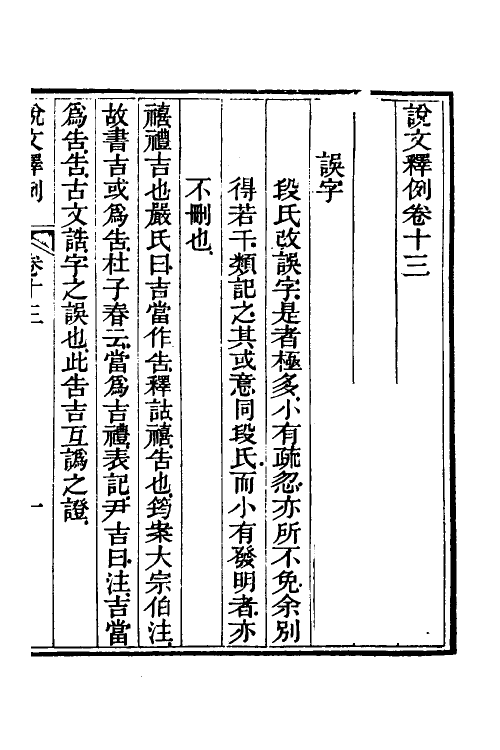 說文釋例卷十三
誤字
段氏改誤字是者極多小有疏忽亦所不免余別
得若干類記之其或意同段氏而小有發明者亦
不刪也
禧禮吉也嚴氏曰吉當作告釋詁禧告也筠案大宗伯注
故書吉或爲告杜子春云當爲吉禮表記尹吉曰注吉當
爲告告古文誥字之誤也此告吉互譌之證
說文釋例 卷十三 一